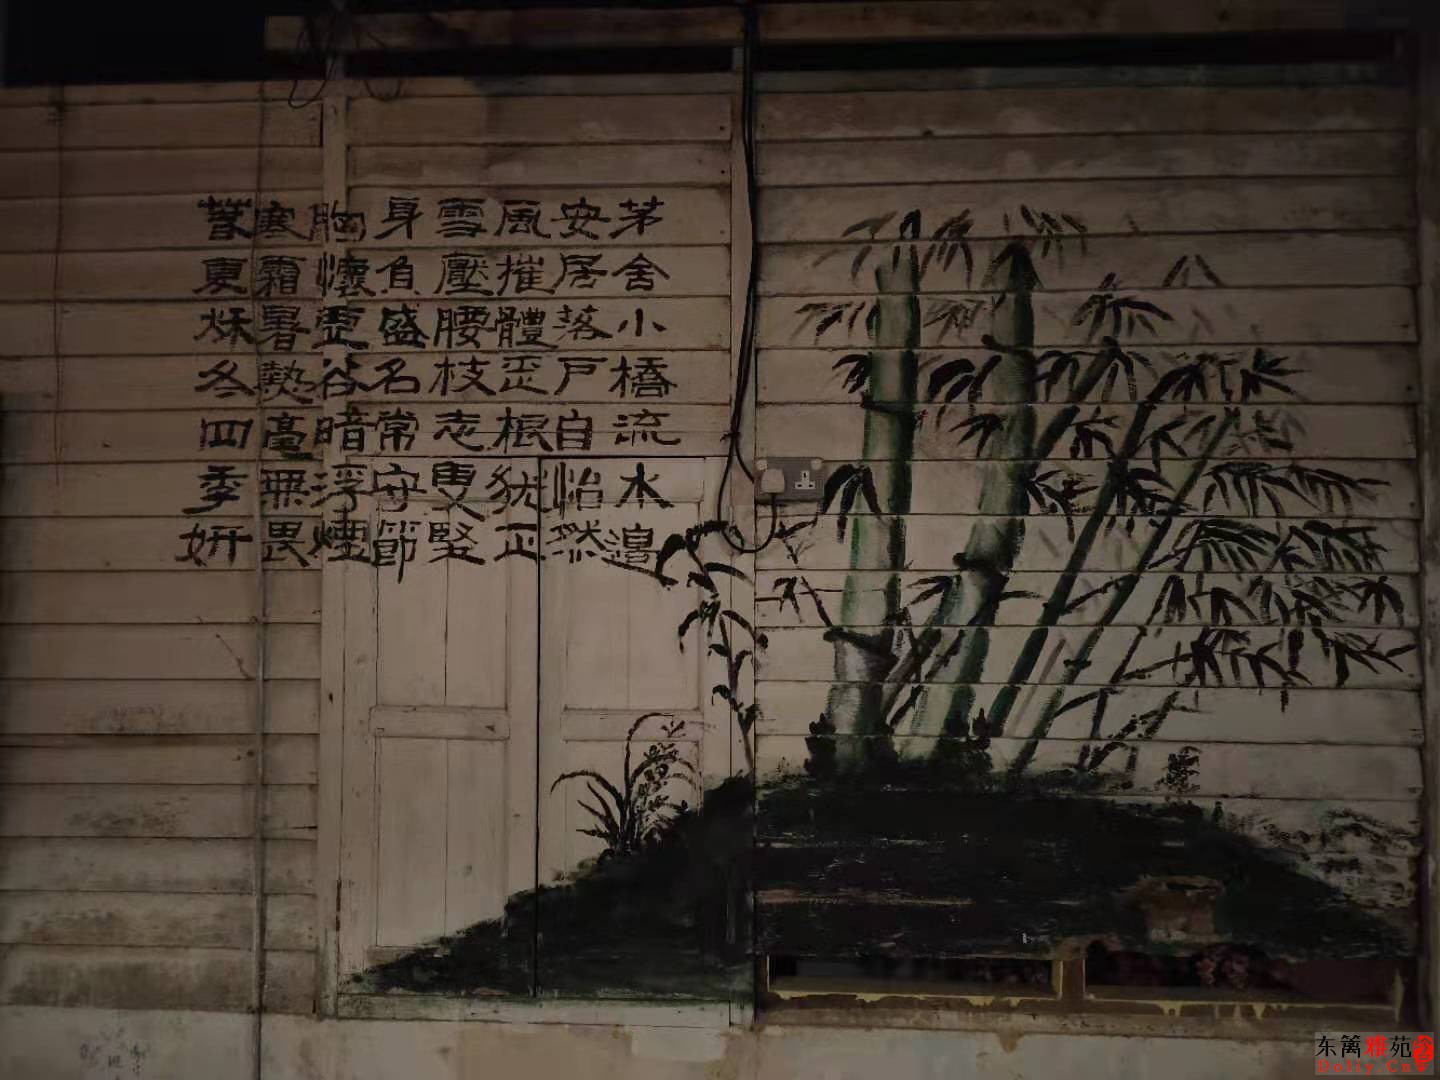 茅舍小橋流水邊
安居落戶自怡然
風摧體歪根犹正
雪壓腰枝志更堅
身負盛名常守節
胸懷虛谷暗浮煙
寒霜暑熱毫無畏
春夏秋冬四季妍
东篱雅苑
Dolly.Cn